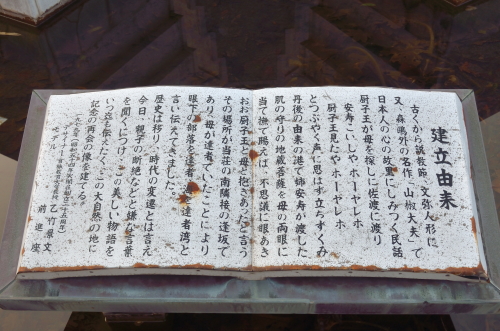 建立由来
古くから説教節、文弥人形に
又、森鴎外の名作「山椒大夫」で
日本人の心の故里にしみつく民話
厨子王が母を探しに佐渡に渡り
安寿こいしや ホーヤレホ
厨子王見たや ホーヤレホ
とつぶやく声に思はず立ちすくみ
丹後の由来の港で姉安寿が渡した
肌の守りの地蔵菩薩を母の両眼に
当て撫で賜んば、不思議に眼あき
おお厨子王か母と抱きあったと言う
その場所が当荘の南隣接の逢坂で
あり、母が達者でいたことにより
眼下の部落を達者、海を達者湾と
言い伝えて来ました。
歴史は移り、時代の変遷とは言え
今日、親子の断絶などと嫌な言葉
を聞くにつけ、この美しい物語を
いつ迄も伝えたく、この大自然の地に
記念の再会の像を建てる。
乙竹原文
モデル 前進座